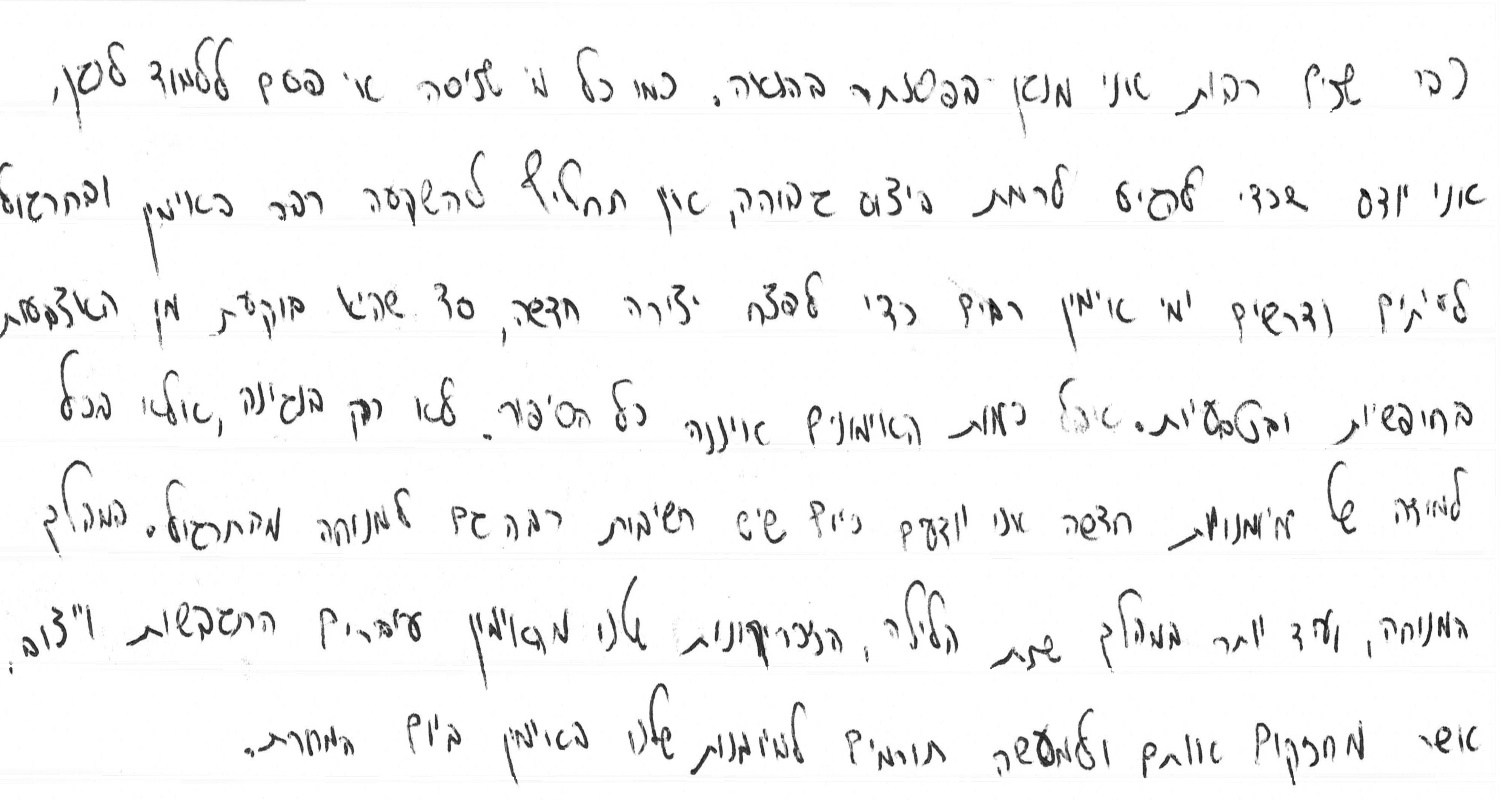 כבר שנים רבות אני מנגן בפסנתר בהנאה. כמו כל מי שניסה אי פעם ללמוד לנגן,
אני יודע שכדי להגיע לרמת ביצוע גבוהה, אין תחליף להשקעה רבה באימון ובתרגול
לעיתים נדרשים ימי אימון רבים כדי לפצח יצירה חדשה, עד שהיא בוקעת מן האצבעות
בחופשיות ובטבעיות. אבל כמות האימונים איננה כל הסיפור. לא רק בנגינה, אלא בכל
למידה של מיומנות חדשה אנו יודעים כיום שיש חשיבות רבה גם למנוחה מהתרגול. במהלך
המנוחה, ועוד יותר במהלך שנת הלילה, הזיכרונות שלנו מהאימון עוברים התגבשות וייצוב,
אשר מחזקים אותם ולמעשה תורמים למיומנות שלנו באימון ביום המחרת.